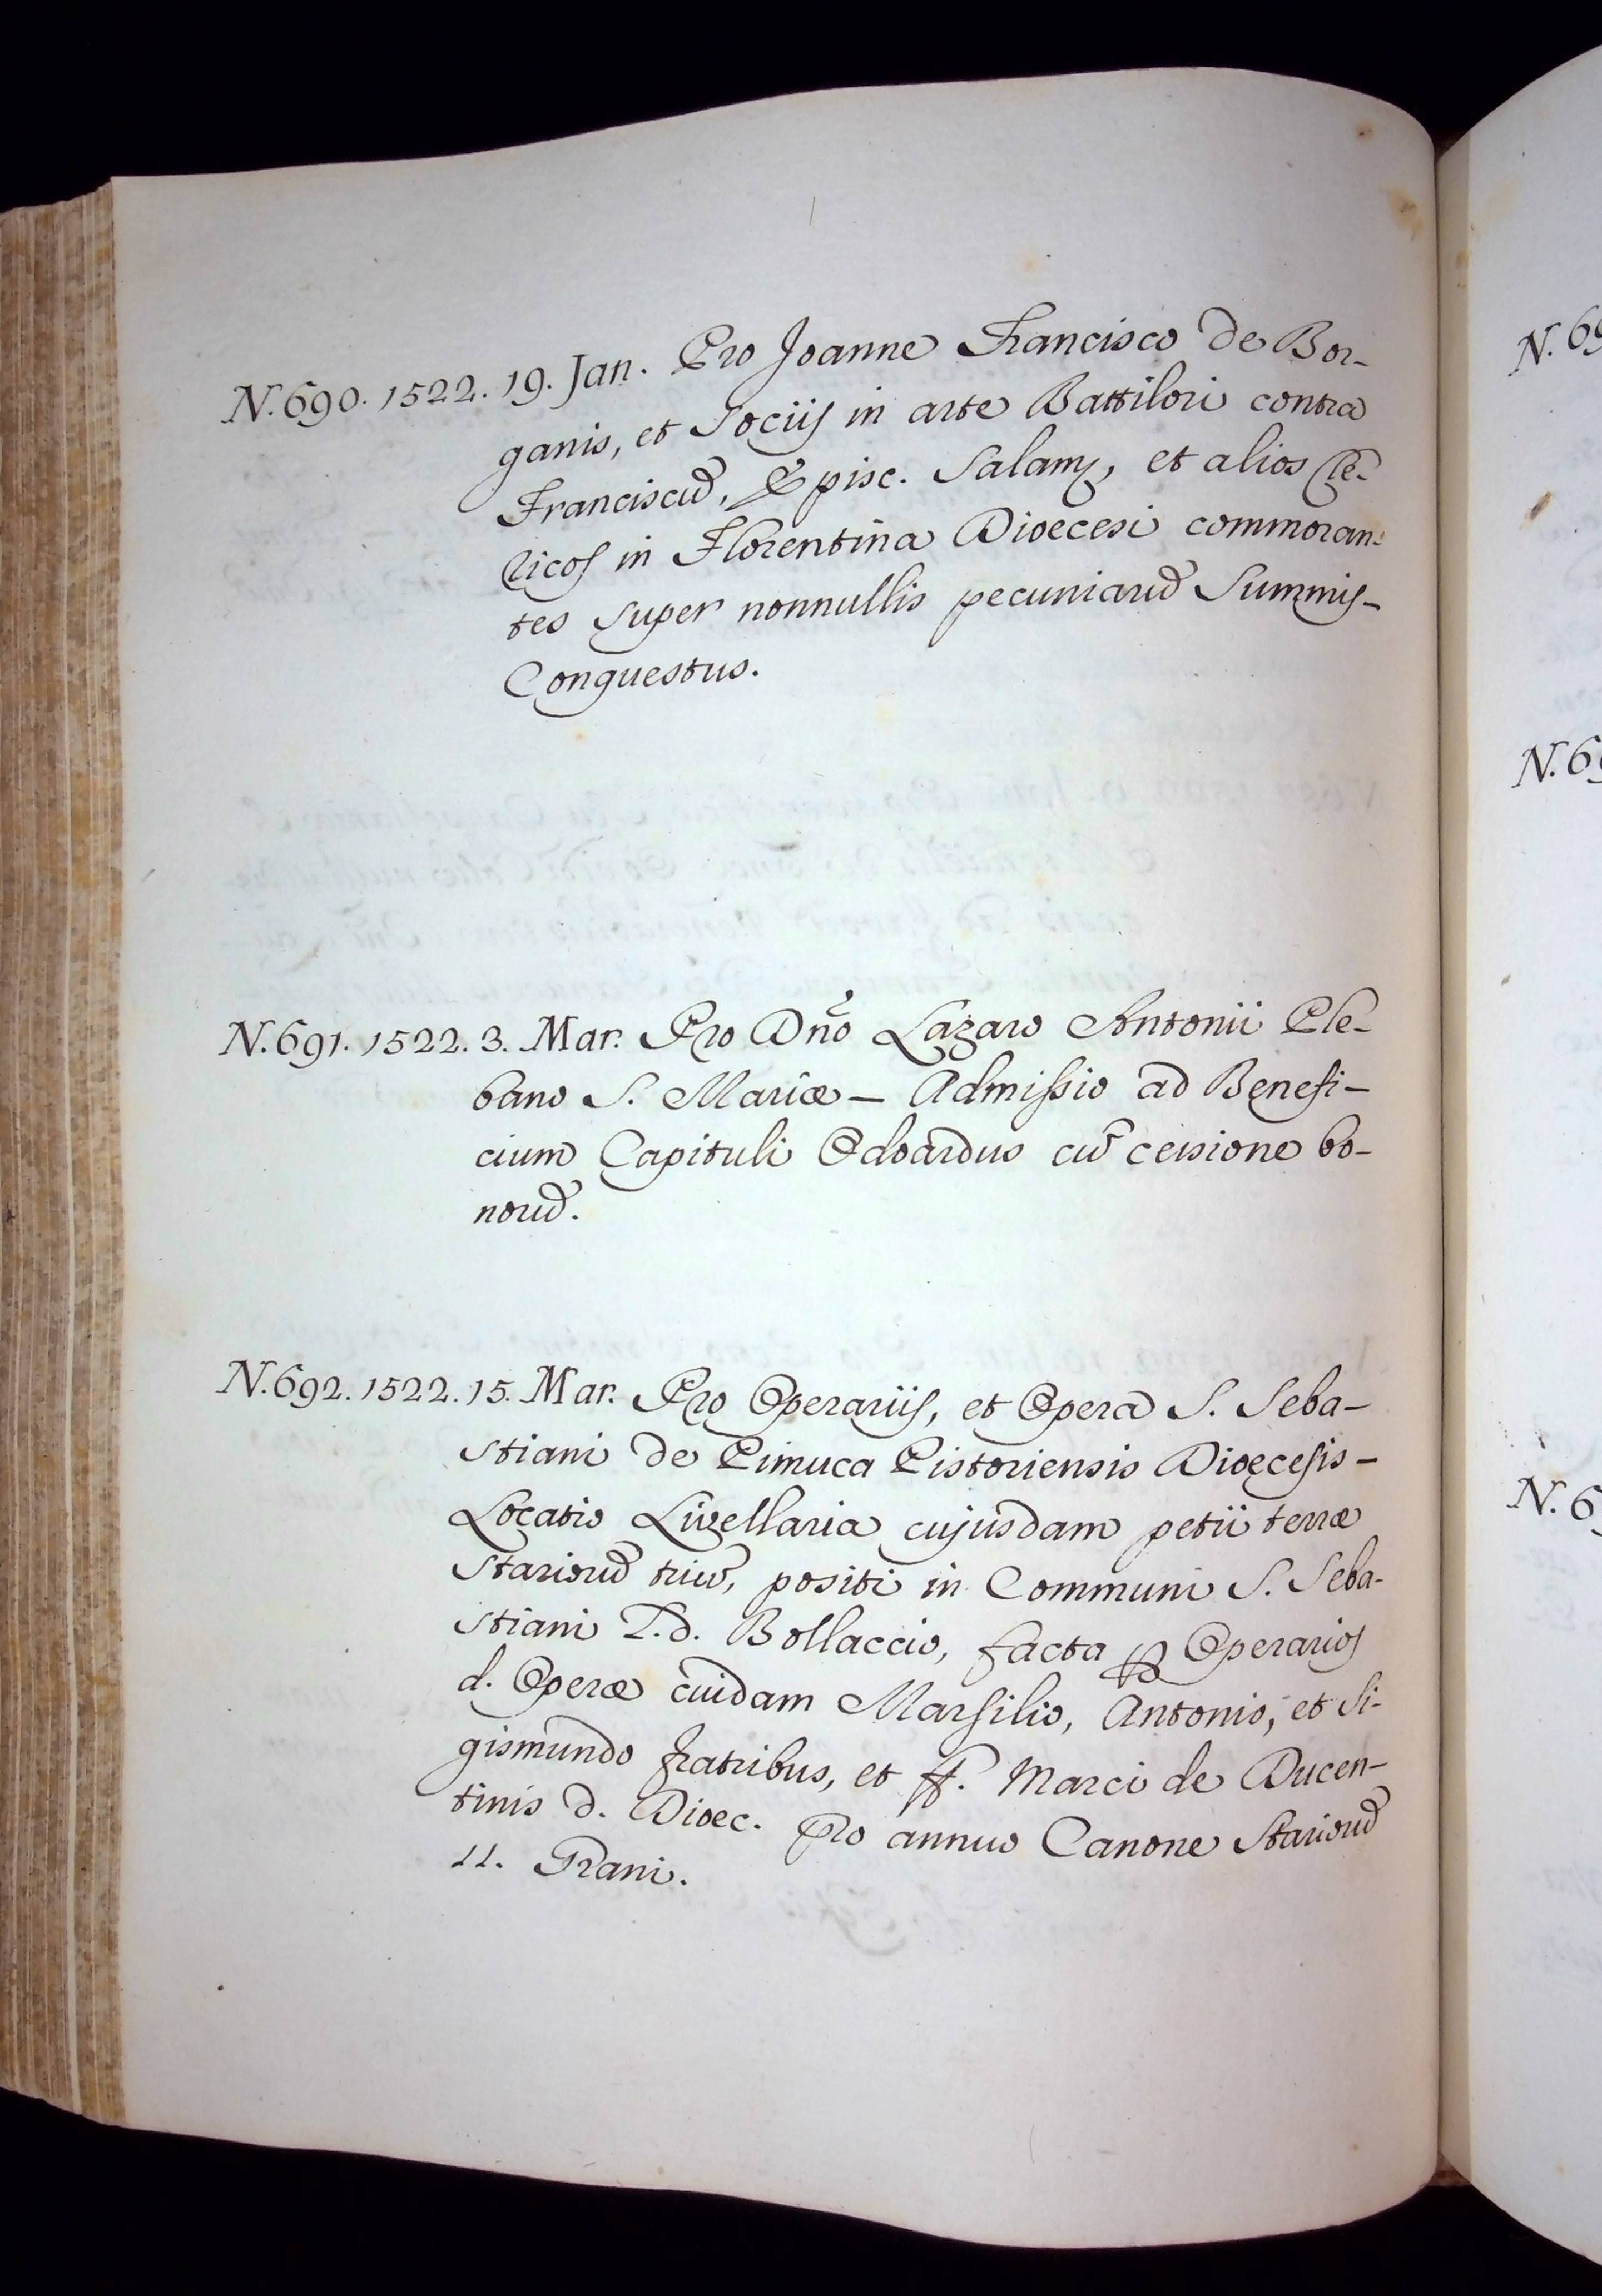 N. 690. 1522. 19. Jan. Pro Joanne Francisco de Bor-
ganis, et Sociis in arte Battilori contra
Franciscu͂, Episc. Salam, et alios Cle-
ricos in Florentina Dioecesi commoran-
tes super nonnullis pecuniaru͂ Summis-
Conquestus.
N. 691. 1522. 3. Mar. Pro Dn͂o Lazaro Antonii Ple-
bano S. Mariæ – Admissio ad Benefi-
cium Capituli Odoardus cu͂ cessione bo-
noru͂.
N. 692. 1522. 15. Mar. Pro Operariis, et Opera S. Seba-
stiani de Pimuca Pistoriensis Dioecesis –
Locatio Livellaria cujusdam petii terræ
Starioru͂ triu͂, positi in Communi S. Seba-
stiani L.d. Bollaccio, facta ꝑ Operarios
d. Operæ cuidam Marsilio, Antonio, et Si-
gismundo fratribus, et ff. Marci de Ducen-
tinis d. Dioec. pro annuo Canone Starioru͂
11. Grani.
N. 69
N. 69
N. 6